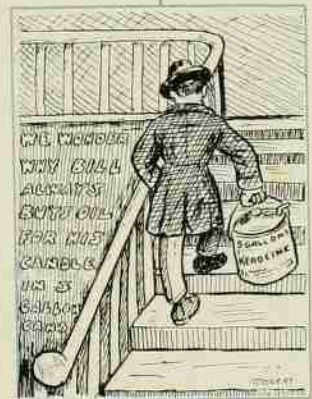 WE WONDER
WHY BILL
ALWAYS
BUYS OIL
FOR HIS
CANDLE
IN 5
GALLON
CANS
5 GALLONS